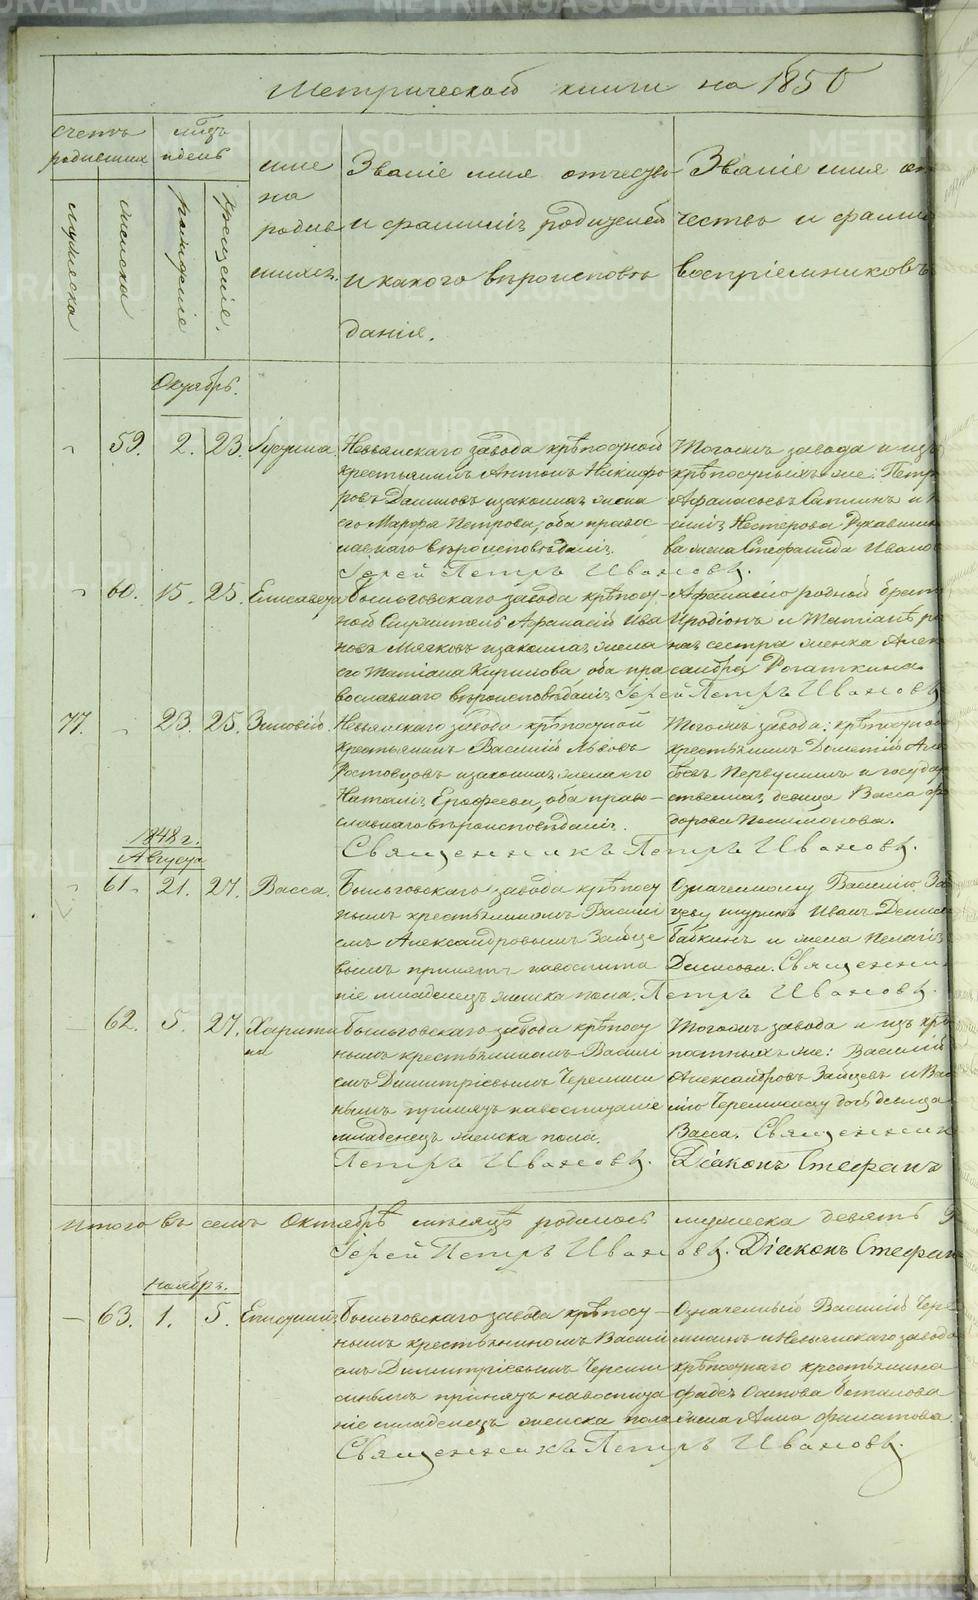 Метрической книги на 1850
счетъ родившихся
мужеска
женска
мѣсяцъ и день
рожденіе
крещеніе.
имена родившихся.
Званіе имя отчество
и фамилія родителей
и какого вѣроисповѣ
данія.
Званіе имя от
чество и фамил
воспріемниковъ
Октябрь.
59. 2. 23. Іустина.
Невьянскаго завода крѣпостной
крестьянинъ Антонъ Никифо
ровъ Даниловъ и законная жена
его Марфа Петрова, оба право
славнаго вѣроисповѣданія.
Іерей Петръ Ивановъ.
Тогожъ завода и изъ
крѣпостныхъ же: Петръ
Афанасьевъ Сапинъ и
Нестерова Рукавишни
ва жена Стефанида Ивано
60. 15. 25. Елисавета
Быньговскаго завода крѣпост
ной служитель Афанасій Ива
новъ Мягковъ и законная жена
его Татіана Кирилова, оба пра
вославнаго вѣроисповѣданія. Іерей Петръ Ивановъ
Афанасію родной братъ
Иродіонъ и Татіанѣ ро
ная сестра женка Алек
сандра Рогаткина.
77. 23. 25. Зиновій.
Невьянскаго завода крѣпостной
крестьянинъ Василій Львовъ
Ростовцовъ и законная жена его
Наталія Ерофеева, оба право
славнаго вѣроисповѣданія.
Священникъ Петръ Ивановъ.
Тогожъ завода: крѣпостной
крестьянинъ Дометій Але
ѣевъ Первушинъ и государ
ственная девица Васса Фе
дорова Пошимонова.
1848 г.
Августа
61. 21. 27. Васса.
Быньговскаго завода крѣпост
нымъ крестьяниномъ Василі
емъ Александровымъ Зайце
вымъ принятъ на воспита
ніе младенецъ женска пола. Петръ Ивановъ.
Означенному Василію Зай
цеву шуринъ Иванъ Денис
Бабкинъ и жена Пелагія
Денисова. Священник
62. 5. 27. Харити
на
Быньговскаго завода крѣпост
нымъ крестьяниномъ Василі
емъ Димитріевымъ Черемиси
нымъ принятъ на воспитаніе
младенецъ женска пола.
Петръ Ивановъ.
Тогожъ завода и изъ крѣ
постныхъ же: Василій
Александровъ Зайцевъ и Ва
лію Черемисину дочь девица
Васса. Священник
Діаконъ Стефанъ
Итого въ семъ Октябрѣ мѣсяцѣ родилось мужеска девять
Іерей Петръ Ивановъ. Діаконъ Стефан
Ноябрь.
63. 1. 5. Епистимія
Быньговскаго завода крѣпост
нымъ крестьяниномъ Васили
емъ Димитріевымъ Череми
синымъ принятъ на воспита
ніе младенецъ женска пола
Священникъ Петръ Ивановъ.
Означенный Василій Чере
мисинъ и Невьянскаго завода
крѣпостнаго крестьянина
Фадея Осипова Боталова
жена Анна Филатова
METRIKI.GASO-URAL.RU